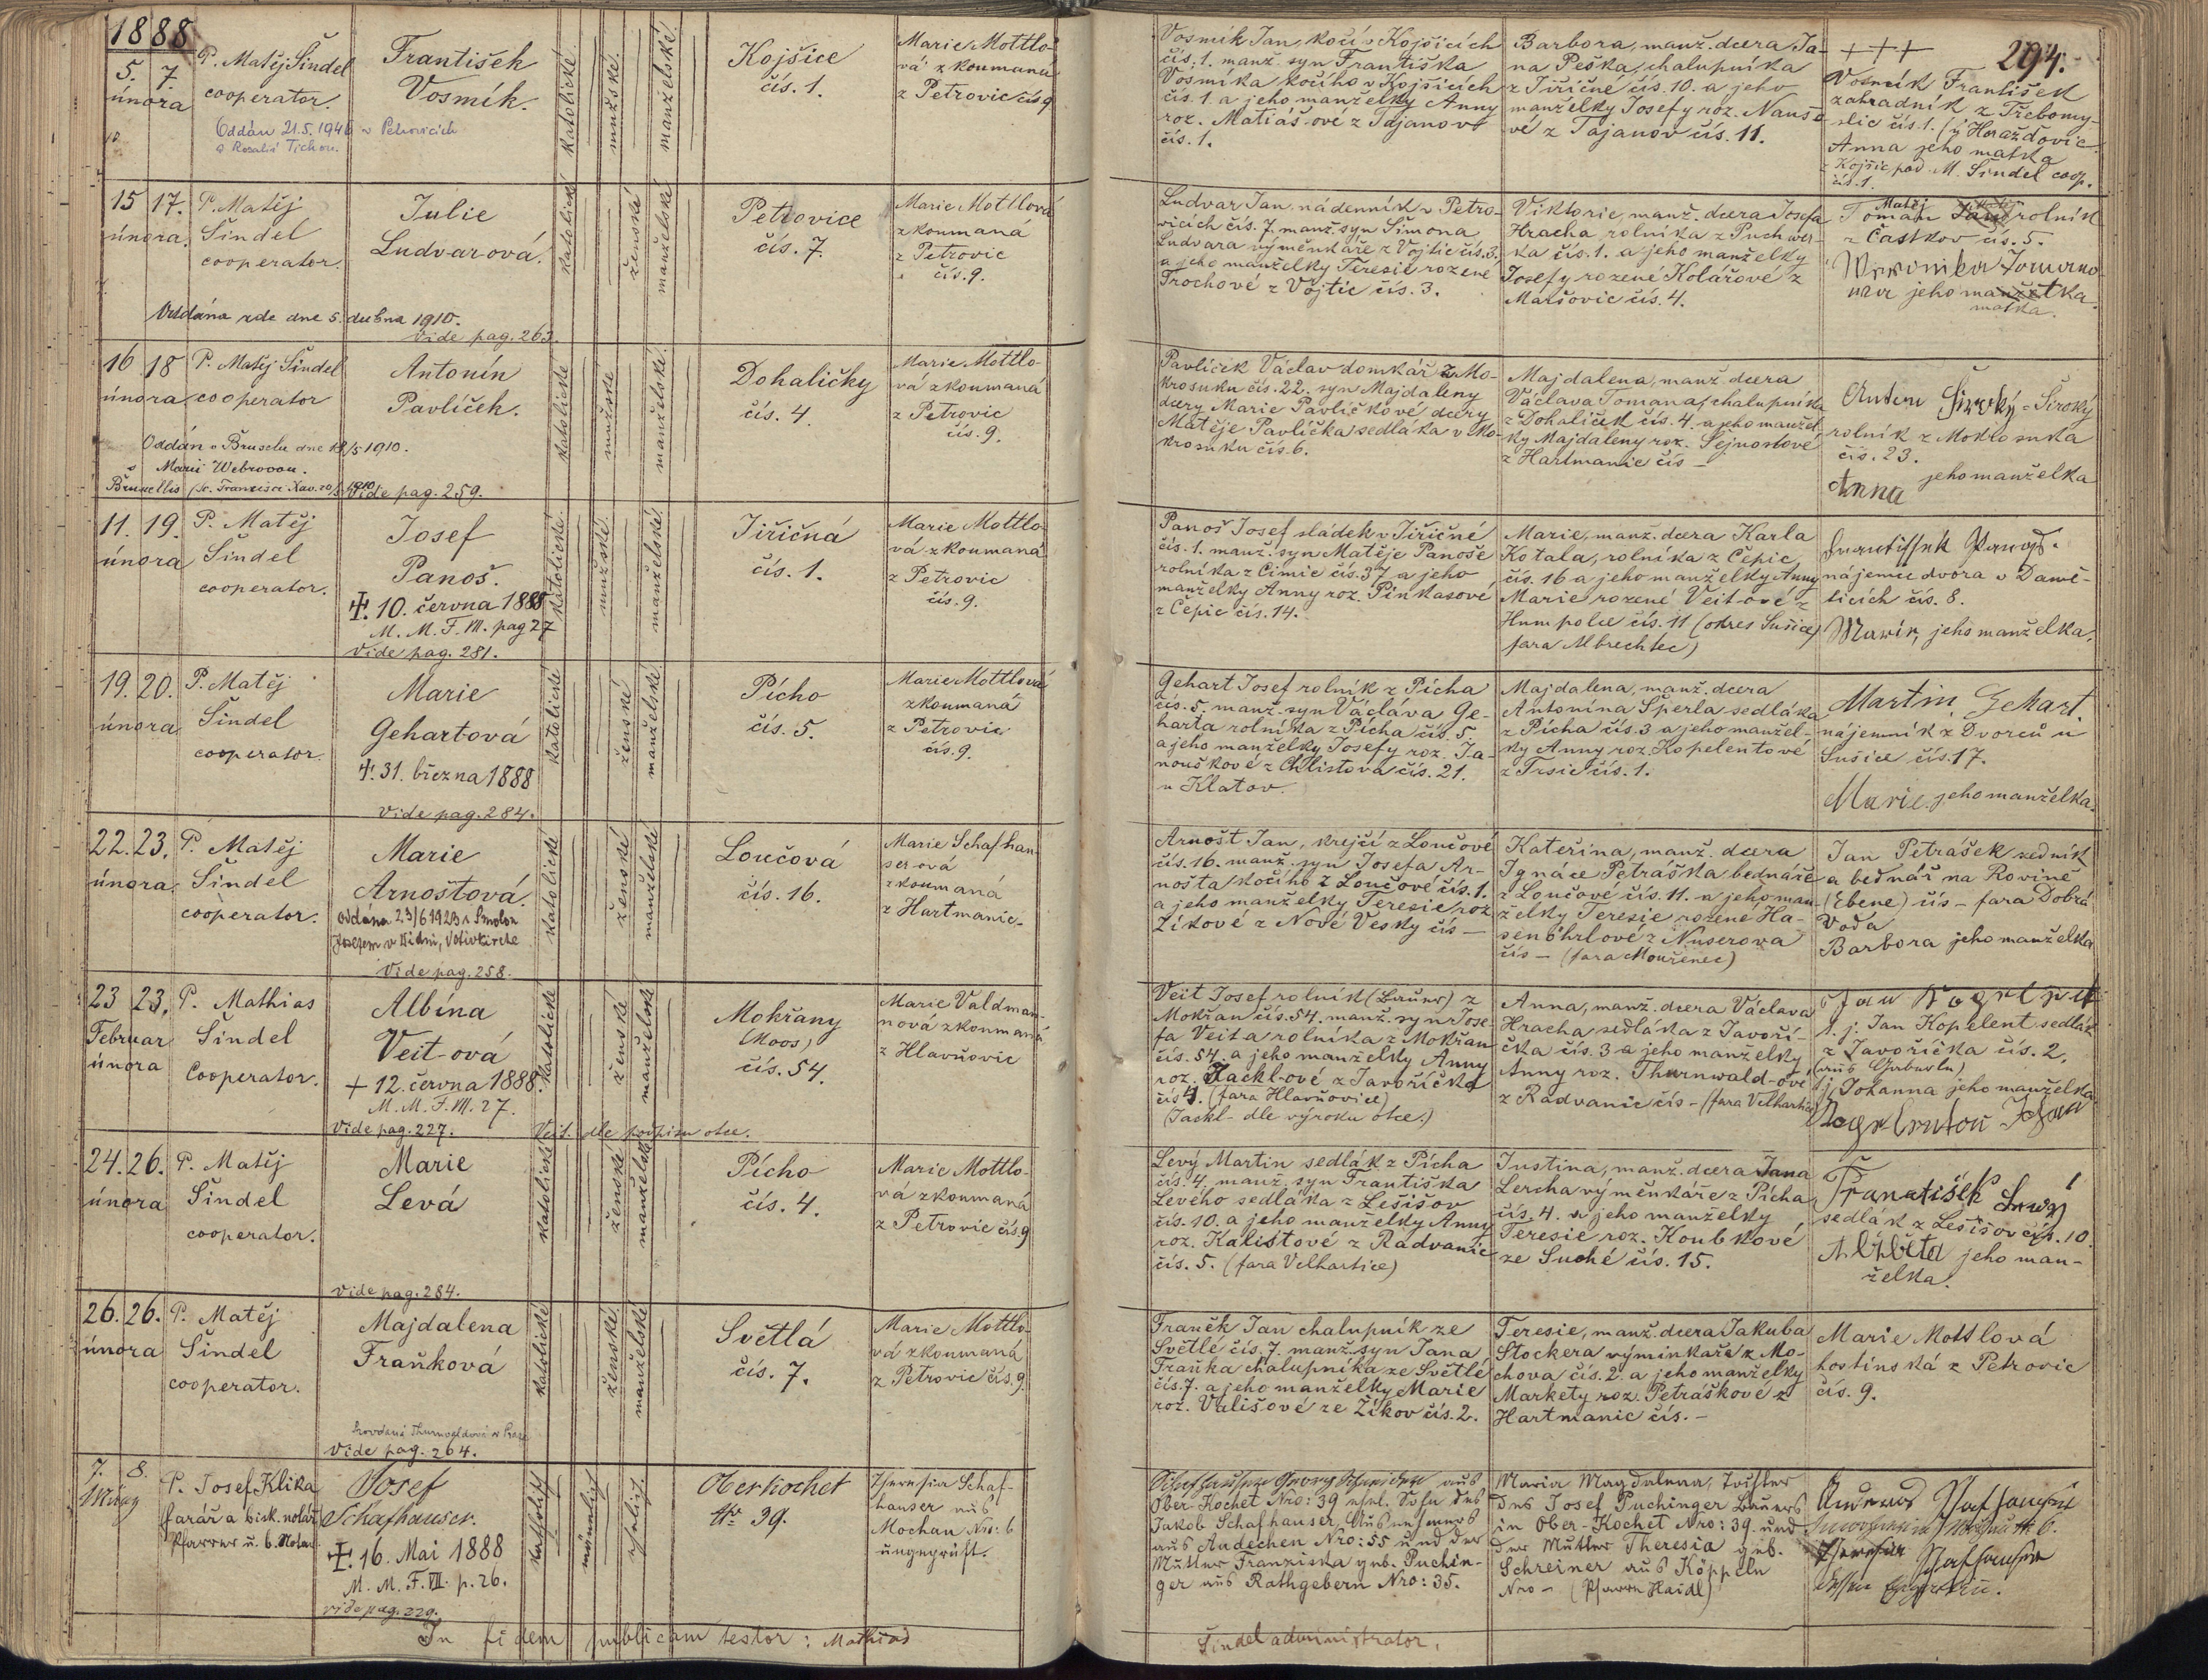 1888
5. 7.
února
P. Matěj Šindel
cooperator.
Oddán 21.5.1946 v Petrovicích
s Rosalií Tichou.
František
Vosmík.
katolické
mužské
manželské
Kojšice
čís. 1.
Marie Mottlo-
vá zkoumaná
z Petrovic čís 9
Vosmík Jan, kočí v Kojšicích
čís. 1. manž. syn Františka
Vosmíka kočího v Kojšicích
čís. 1. a jeho manželky Anny
roz. Matiáš-ové z Tajanov
čís. 1.
Barbora, manž. dcera Ja-
na Peška, chalupníka
z Jiřičné čís. 10. a jeho
manželky Josefy roz. Nauš-
vé z Tajanov čís. 11.
+++
294.
Vosmík František
zahradník z Třebomy-
slic čís. 1. (u Horažďovic
Anna jeho matka
z Kojšic pod. M. Šindel coop.
čís. 1.
15 17.
února.
P. Matěj
Šindel
cooperator.
Julie
Ludvarová.
katolické
ženské
manželské
Petrovice
čís. 7.
Marie Mottlová
zkoumaná
z Petrovic
čís. 9.
Oddána zde dne 5. dubna 1910.
Vide pag. 263.
Ludvar Jan, nádenník v Petro-
vicích čís. 7. manž. syn Šimona
Ludvara výměnkáře z Vojtic čís. 3.
a jeho manželky Teresie rozené
Trochové z Vojtic čís. 3.
Viktorie, manž. dcera Josefa
Hracha rolníka z Puchwer-
ka čís. 1. a jeho manželky
Josefy rozené Kolářové z
Maršovic čís. 4.
Matěj
Toman rolník
z Častkov čís. 5.
Weronika Tomano
wa jeho manželka.
matka.
16 18
února
P. Matěj Šindel
cooperator
Antonín
Pavlíček.
katolické
mužské
manželské
Dohaličky
čís. 4.
Marie Mottlo-
vá zkoumaná
z Petrovic
čís. 9.
Oddán v Bruselu dne 18/5 1910.
s Marií Webrovou.
Bruxellis 1910
Vide pag. 259.
Pavlíček Václav domkář z Mo-
krosuku čís. 22. syn Majdaleny
dcery Marie Pavlíčkové dcery
Matěje Pavlíčka sedláka v Mo-
krosuku čís. 6.
Majdalena, manž. dcera
Václava Tomana, chalupníka
z Dohaliček čís. 4. a jeho manžel-
ky Majdaleny roz. Sejnostové
z Hartmanic čís –
Anton Široký = Široký
rolník z Mokrosuka
čís. 23.
Anna jeho manželka
11. 19.
února
P. Matěj
Šindel
cooperator.
Josef
Panoš.
✝. 10. června 1888
M. M. F. VII. pag 27
Vide pag. 281.
katolické
mužské
manželské
Jiřičná
čís. 1.
Marie Mottlo-
vá zkoumaná
z Petrovic
čís. 9.
Panoš Josef sládek v Jiřičné
čís. 1. manž. syn Matěje Panoše
rolníka z Čimic čís. 37 a jeho
manželky Anny roz. Pinkasové
z Čepic čís. 14.
Marie, manž. dcera Karla
Kotala, rolníka z Čepic
čís. 16 a jeho manželky Anny
Marie rozené Veit-ové z
Humpolce čís. 11 (okres Sušice)
fara Albrechtec)
Frantissek Panoš.
nájemce dvora v Damě-
ticích čís. 8.
Marie, jeho manželka.
19. 20.
února
P. Matěj
Šindel
cooperator.
Marie
Gehartová
✝. 31. března 1888
Vide pag. 284.
katolické
ženské
manželské
Pícho
čís. 5.
Marie Mottlová
zkoumaná
z Petrovic
čís. 9.
Gehart Josef rolník z Pícha
čís. 5. manž. syn Václava Ge-
harta rolníka z Pícha čís. 5.
a jeho manželky Josefy roz. Ja-
nouškové z Chlistova čís. 21.
u Klatov.
Majdalena, manž. dcera
Antonína Šperla sedláka
z Pícha čís. 3 a jeho manžel-
ky Anny roz. Kopelentové
z Trsic čís. 1.
Martin Gehart.
nájemník z Dvorců u
Sušice čís. 17.
Marie jeho manželka.
22. 23.
února
P. Matěj
Šindel
cooperator.
Marie
Arnoštová.
oddána 23/6 1923 s Smolou
Josefem v Vídni, Votivkirche
Vide pag. 258.
katolické
ženské
manželské
Loučová
čís. 16.
Marie Schafhau-
serová
zkoumaná
z Hartmanic
Arnošt Jan, krejčí z Loučové
čís. 16. manž. syn Josefa Ar-
nošta kočího z Loučové čís. 1.
a jeho manželky Teresie roz.
Žikové z Nové Vesky čís –
Kateřina, manž. dcera
Ignáce Petráška bednáře
z Loučové čís. 11. a jeho man-
želky Teresie rozené Ha-
senöhrlové z Nuserova
čís – (fara Mouřenec)
Jan Petrášek zedník
a bednář na Rovině
(Ebene) čís – fara Dobrá
Voda
Barbora jeho manželka
23 23.
Februar
února
P. Mathias
Šindel
Cooperator.
Albína
Veit-ová
+ 12. června 1888.
M. M. F. VII. 27.
Vide pag. 227.
Veit. dle podpisu otce.
katolické
ženské
manželské
Mokřany
(Moos)
čís. 54.
Marie Valdman-
nová zkoumaná
z Hlavňovic
Veit Josef rolník (Bauer) z
Mokřan čís. 54. manž. syn Jose-
fa Veita rolníka z Mokřan
čís. 54. a jeho manželky Anny
roz. Jackl-ové z Javoříčka
čís 4. (fara Hlavňovice)
(Jackl – dle výroku otce.)
Anna, manž. dcera Václava
Hracha sedláka z Javoří-
čka čís. 3 a jeho manželky
Anny roz. Thurnwald-ové
z Radvanic čís – (fara Velhartice)
t. j. Jan Kopelent, sedlák
z Javoříčka čís. 2.
t. j. Johanna jeho manželka
24. 26.
února
P. Matěj
Šindel
cooperator.
Marie
Levá
Vide pag. 284.
katolické
ženské
manželské
Pícho
čís. 4.
Marie Mottlo-
vá zkoumaná
z Petrovic čís. 9
Levý Martin sedlák z Pícha
čís 4. manž. syn Františka
Levého sedláka z Lešišov
čís. 10. a jeho manželky Anny
roz. Kalistové z Radvanic
čís. 5. (fara Velhartice)
Justina, manž. dcera Jana
Lercha výměnkáře z Pícha
čís. 4. a jeho manželky
Teresie roz. Koubkové
ze Suché čís. 15.
František Lewý
sedlák z Lešišov čís. 10.
Alžběta jeho man-
želka.
26. 26.
února
P. Matěj
Šindel
cooperator.
Majdalena
Fraňková
Vide pag. 264.
katolické
ženské
manželské
Světlá
čís. 7.
Marie Mottlo-
vá zkoumaná
z Petrovic čís. 9.
Franěk Jan chalupník ze
Světlé čís. 7. manž. syn Jana
Fraňka chalupníka ze Světlé
čís. 7. a jeho manželky Marie
roz. Vališové ze Žikov čís. 2.
Teresie, manž. dcera Jakuba
Stockera výminkáře z Mo-
chova čís. 2. a jeho manželky
Markety roz. Petráškové z
Hartmanic čís. –
Marie Mottlová
hostinská z Petrovic
čís. 9.
7. 8.
März
P. Josef Klika
farář a bisk. notář
Pfarrer u. b. Notar.
Josef
Schafhauser.
✝. 16. Mai 1888
M. M. F. VII. p. 26.
vide pag. 229.
katholisch
männlich
ehelich
Oberkochet
Nr. 39.
Theresia Schaf-
hauser aus
Mochau Nro: 6
ungeprüft.
Schafhauser Georg aus
Ober-Kochet Nro: 39 ehel. Sohn des
Jakob Schafhauser, Ausnehmers
aus Audechen Nro: 55 und der
Mutter Franziska geb. Puchin-
ger aus Rathgebern Nro: 35.
Maria Magdalena, Tochter
des Josef Puchinger Bauers
in Ober-Kochet Nro: 39. und
der Mutter Theresia geb.
Schreiner aus Köppeln
Nro – (Pfarre Haidl)
Andreas Schafhauser
Theresia Schafhauser
dessen Ehegattin.
In fidem publicam testor: Mathias
Šindel administrator.